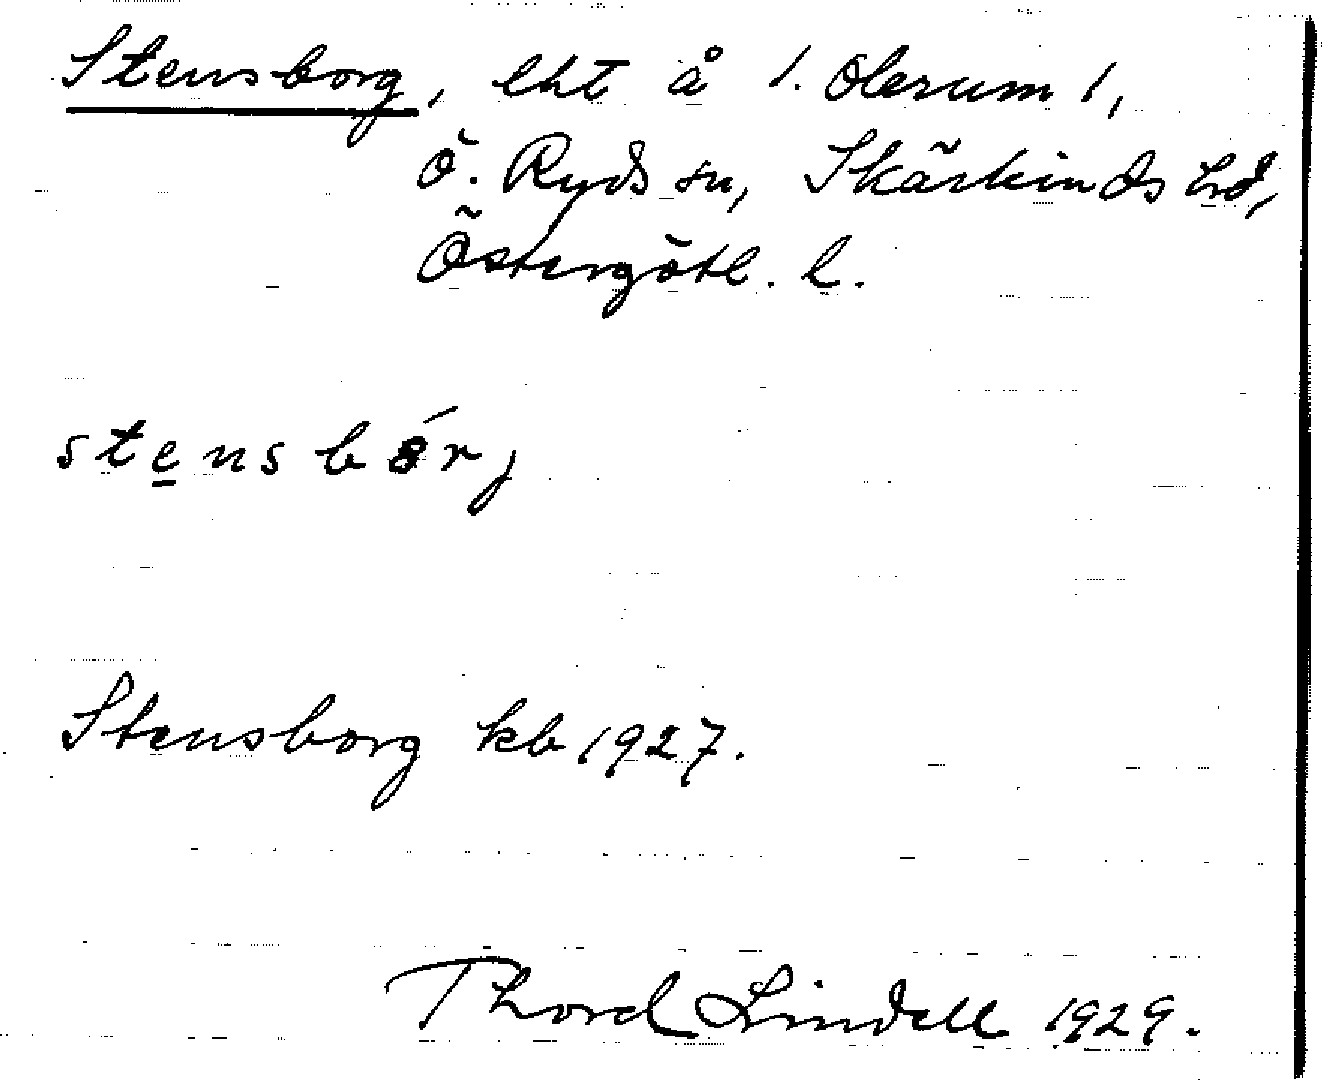 Stensborg, lht å 1. Olerum 1,
Ö. Ryds sn, Skärkinds hd,
Östergötl. l.
stensbór,
Stensborg kb 1927.
Thord Lindell 1929.